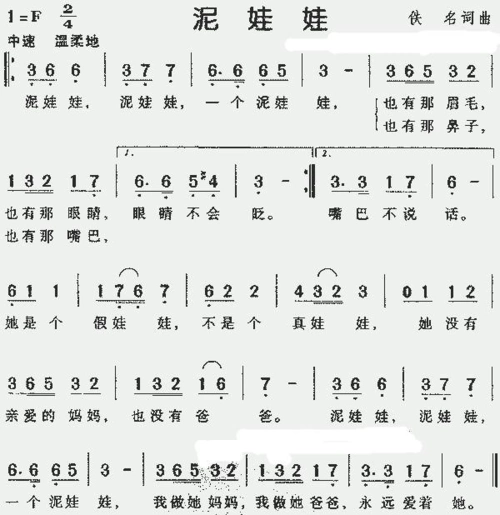 1=F 2/4 泥娃娃 佚 名词曲
中速 温柔地
3 6 6 | 3 7 7 | 6· 6 6 5 | 3 – | 3 6 5 3 2 |
泥娃娃, 泥娃娃, 一个泥娃 娃, 也有那眉毛,
也有那鼻子,
1. 2.
1 3 2 1 7 | 6· 6 5 #4 | 3 – :| 3· 3 1 7 | 6 – |
也有那眼睛, 眼睛不会 眨。 嘴巴不说 话。
也有那嘴巴,
6 1 1 | 1 7 6 7 | 6 2 2 | 4 3 2 3 | 0 1 1 2 |
她是个 假娃 娃, 不是个 真娃 娃, 她没有
3 6 5 3 2 | 1 3 2 1 6 | 7 – | 3 6 6 | 3 7 7 |
亲爱的妈妈, 也没有爸 爸。 泥娃娃, 泥娃娃,
6· 6 6 5 | 3 – | 3 6 5 3 2 | 1 3 2 1 7 | 3· 3 1 7 | 6 – ‖
一个泥娃 娃, 我做她妈妈, 我做她爸爸, 永远爱着 她。